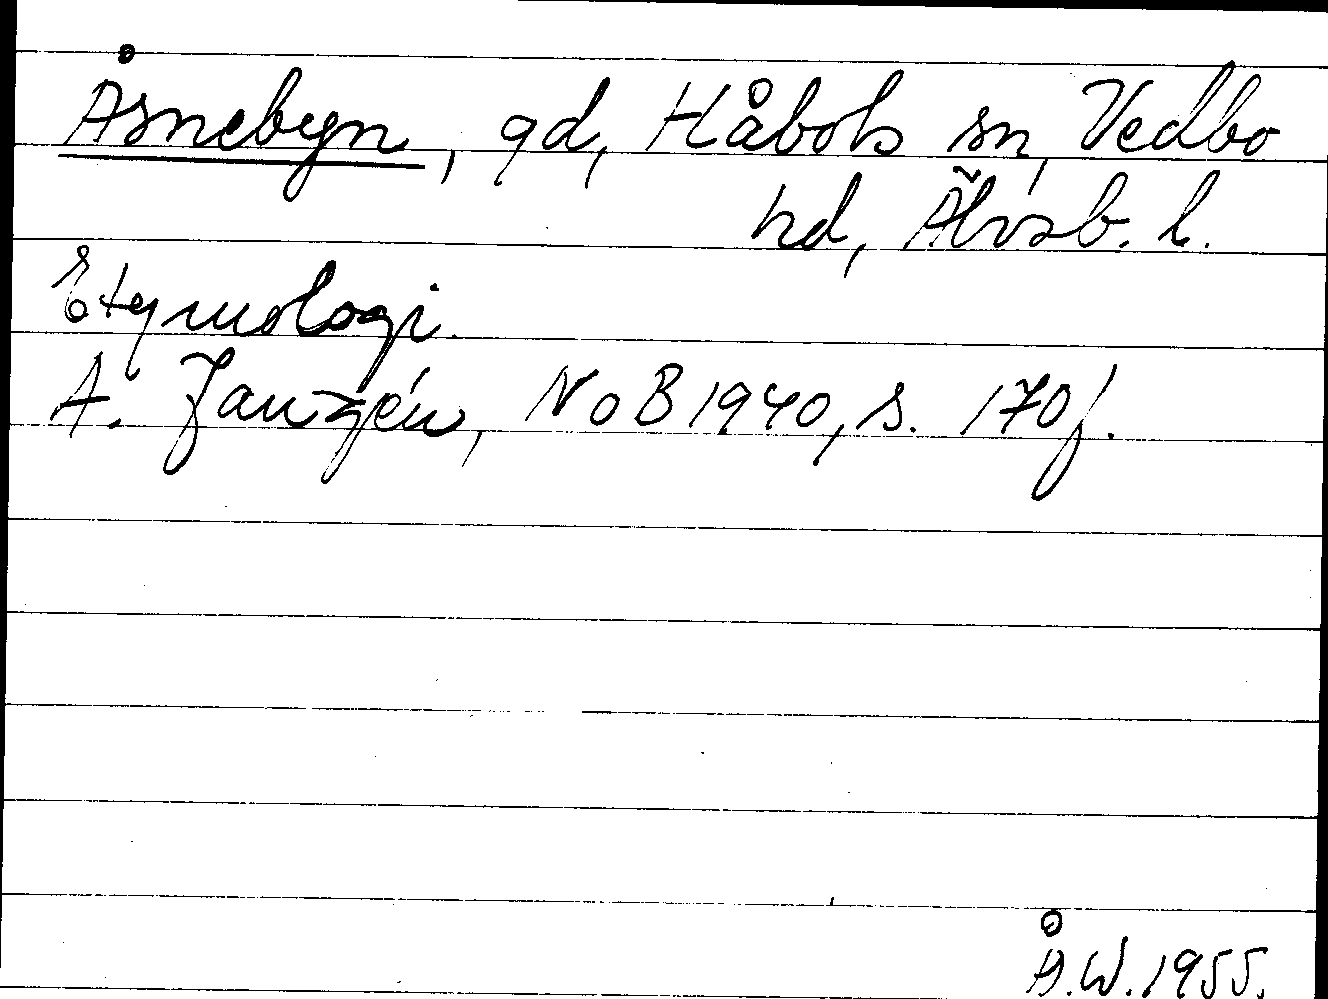 Åsnebyn, gd, Håbols sn, Vedbo
hd, Älvsb. l.
Etymologi.
A. Janzén, NoB 1940, s. 170f.
Å.W. 1955.